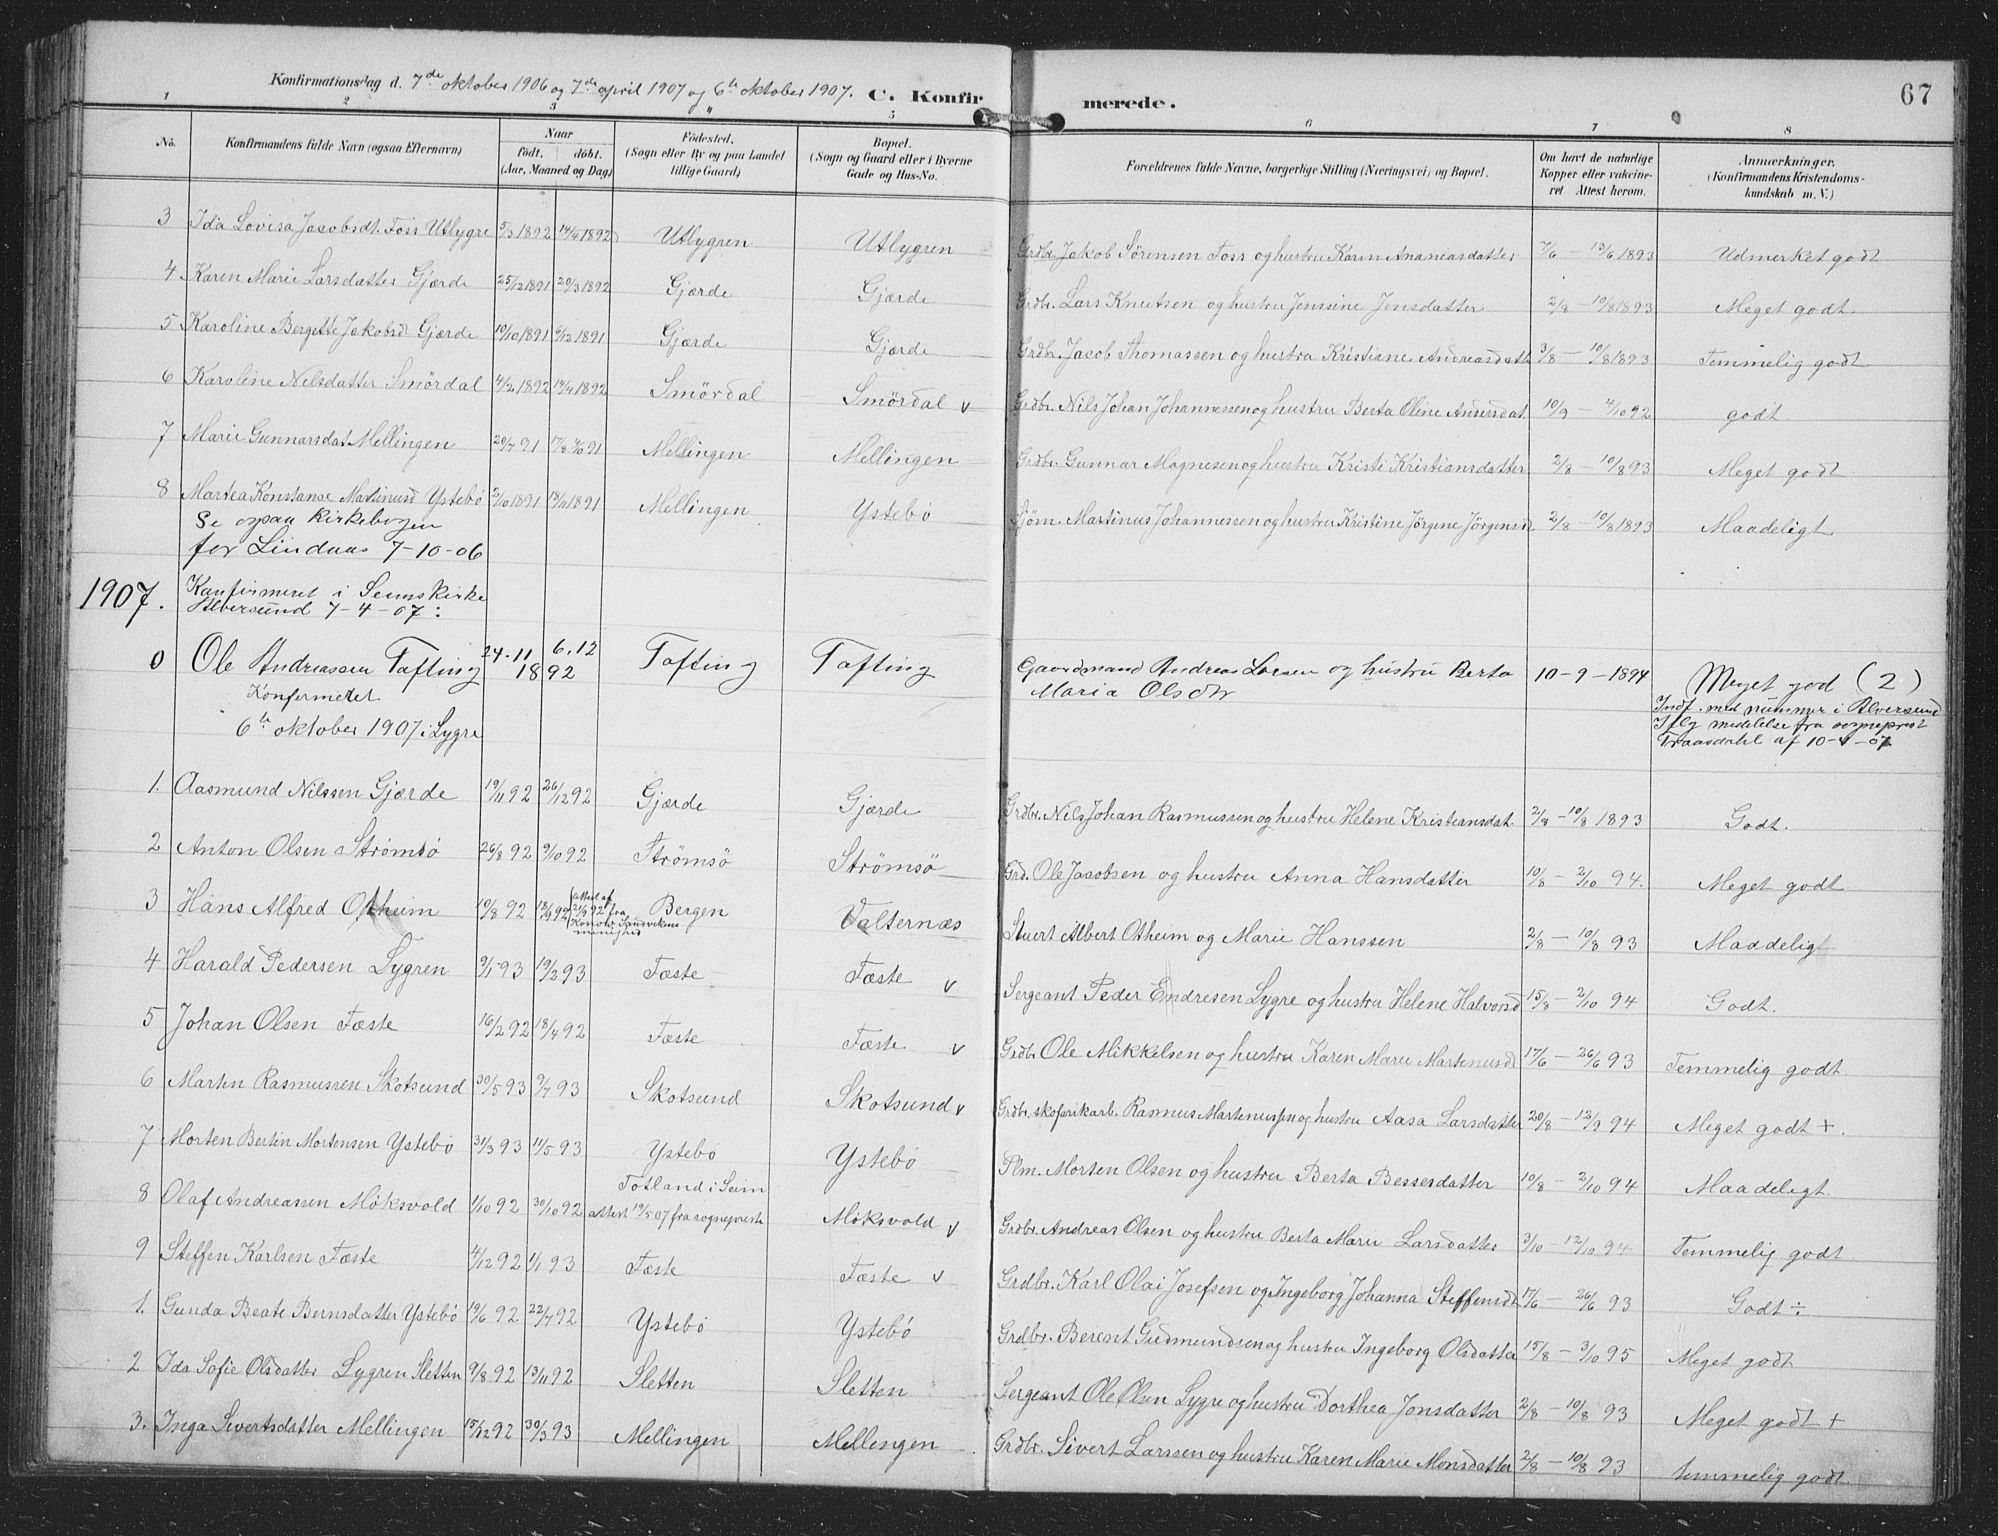 Konfirmationsdag d. 7de oktober 1906 og 7de april 1907 og 6te oktober 1907. C. Konfirmerede. 67
1 2 3 4 5 6 7 8
No. Konfirmandens fulde Navn (ogsaa Efternavn) Naar födt. döbt. (Aar, Maaned og Dag) Födested. (Sogn eller By og paa Landet tillige Gaard) Bopæl. (Sogn og Gaard eller i Byerne Gade og Hus-No. Forældrenes fulde Navne, borgerlige Stilling (Næringsvei) og Bopæl. Om havt de naturlige Kopper eller vakcineret Attest herom. Anmærkninger. (Konfirmandens Kristendomskundskab m. V.)
3 Ida Lovisa Jacobsdt. Foss Utlygre 5/3 1892 14/4 1892 Utlygren Utlygren Grdbr. Jakob Sörensen Foss og hustru Karen Ananiasdatter 7/6 — 13/6 1893 Udmerket godt
4 Karen Marie Larsdatter Gjærde 25/12 1891 20/3 1892 Gjærde Gjærde Grdbr. Lars Knutsen og hustru Jenssine Jensdatter 2/8 — 10/8 1893 Meget godt
5 Karoline Bergette Jakobsd Gjærde 10/10 1891 6/12 1891 Gjærde Gjærde Grdbr. Jacob Thomassen og hustru Kristiane Andreasdatt 3/8 — 10/8 1893 Temmelig godt
6 Karoline Nilsdatter Smördal 4/2 1892 14/4 1892 Smördal Smördal v Grdbr. Nils Johan Johannessen og hustru Berta Oline Andersdat 10/9 — 4/10 92 godt
7 Marie Gunnarsdat Mellingen 20/7 91 91 Mellingen Mellingen Grdbr. Gunnar Magnesen og hustru Kristi Kristiansdatter 2/8 — 10/8 93 Meget godt
8 Martea Konstanse Martinusd Ystebö 2/10 1891 18/11 1891 Mellingen Ystebö Sjöm. Martinus Johannessen og hustru Kristine Jörgene Jörgensd 2/8 — 10/8 1893 Maadeligt
Se ogsaa Kirkebogen
for Lindaas 7-10-06
1907. Konfirmeret i Seims Kirke
Alversund 7-4-07:
0 Ole Andreassen Tofting 24.11 6.12 1892 Tofting Tofting Gaardmand Andreas Larsen og hustru Berta 10-9-1894 Meget god (2)
Maria Olsdtr
Indf. med nummer i Alversund
Iflg medelelse fra sogneprest
Traasdahl af 10-4-07
Konfermeret
6te oktober 1907 i Lygre
1. Aasmund Nilssen Gjærde 19/11 92 26/12 92 Gjærde Gjærde Grdbr. Nils Johan Rasmussen og hustru Helene Kristiansdat. 2/8 — 10/8 1893 Godt.
2 Anton Olsen Strömsö 26/8 92 9/10 92 Strömsö Strömsö Grd. Ole Jacobsen og hustru Anna Hansdatter 10/8 — 2/10 94. Meget godt
3 Hans Alfred Otheim 19/8 92 18/9 92 (attest af 21/9 92 fra Sandvikens menighed Bergen Valternæs Stuert Albert Otheim og Marie Hanssen 2/8 — 10/8 93 Maadeligt
4 Harald Pedersen Lygren 9/1 93 19/2 93 Fæste Fæste v Sergeant Peder Endresen Lygre og hustru Helene Halvorsd 15/8 — 2/10 94 Godt.
5 Johan Olsen Fæste 16/2 92 18/4 92 Fæste Fæste v Grdbr Ole Mikkelsen og hustru Karen Marie Martenusd 17/6 — 26/6 93 Temmelig godt.
6 Marten Rasmussen Skotsund 30/5 93 9/7 93 Skotsund Skotsund v Grdbr. skofarikarb. Rasmus Martenussen og hustru Aasa Larsdatter 20/8 — 12/9 94 Meget godt +.
7 Morten Bertin Mortensen Ystebö 31/3 93 11/5 93 Ystebö Ystebö Plm. Morten Olsen og hustru Berta Bessesdatter 10/8 — 2/10 94 Maadeligt.
8 Olaf Andreassen Möksvold 1/10 92 30/10 92 Totland i Seim attest 19/5 07 fra sogneprest Möksvold v Grdbr. Andreas Olsen og hustru Berta Marie Larsdatter 3/10 — 12/10 94 Temmelig godt
9 Steffen Karlsen Fæste 4/12 92 1/1 93 Fæste Fæste v Grdbr. Karl Olai Josefsen og Ingeborg Johanna Steffensd 17/6 — 26/6 93 Godt ÷
1. Gunda Beate Bernsdatter Ystebö 19/6 92 22/7 92 Ystebö Ystebö Grdbr. Berent Gudmundsen og hustru Ingeborg Olsdatter 15/8 — 3/10 95 Meget godt
2 Ida Sofie Olsdatter Lygren Sletten 9/8 92 13/11 92 Sletten Sletten Sergeant Ole Olsen Lygre og hustru Dorthea Jonsdatter 2/8 — 10/8 93 Meget godt +
3. Inga Sivertsdatter Mellingen 15/12 92 30/3 93 Mellingen Mellengen Grdbr. Sivert Larssen og hustru Karen Marie Monsdatter 2/8 — 10/8 93 temmelig godt.